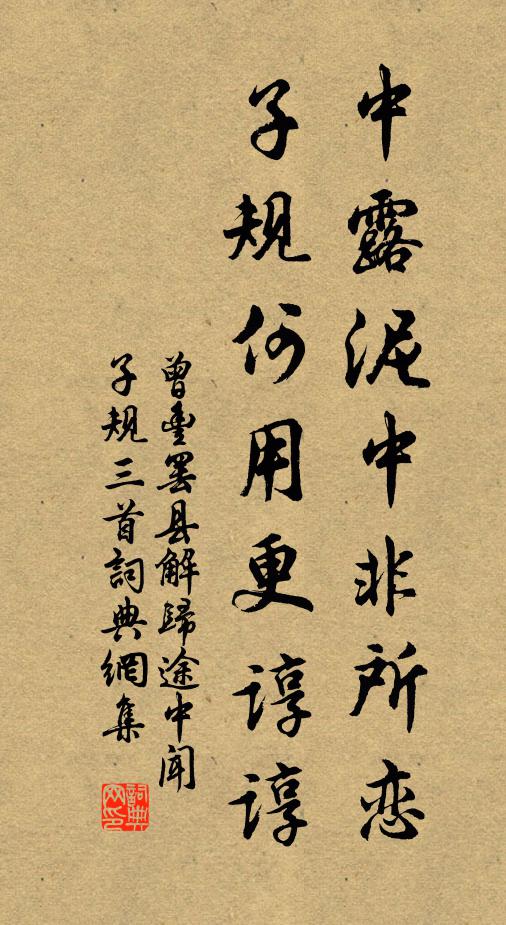 中露泥中非所恋
子规何用更谆谆
曾豐罢县解歸途中闻
子规三首詞典網集
詞典網印